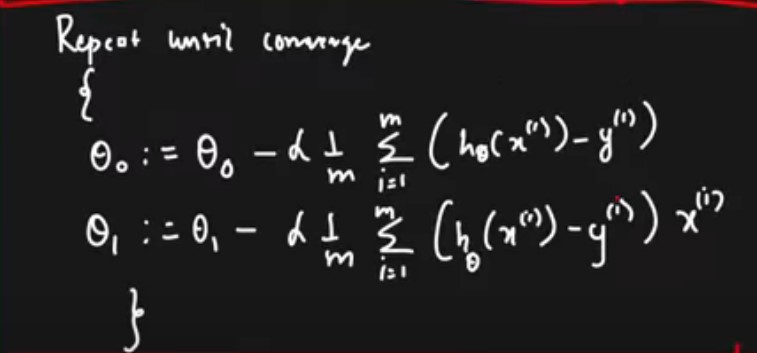 Repeat until converge
{
θ₀ := θ₀ - α 1/m Σ_{i=1}^{m} (h_θ(x^{(i)}) - y^{(i)})
θ₁ := θ₁ - α 1/m Σ_{i=1}^{m} (h_θ(x^{(i)}) - y^{(i)}) x^{(i)}
}